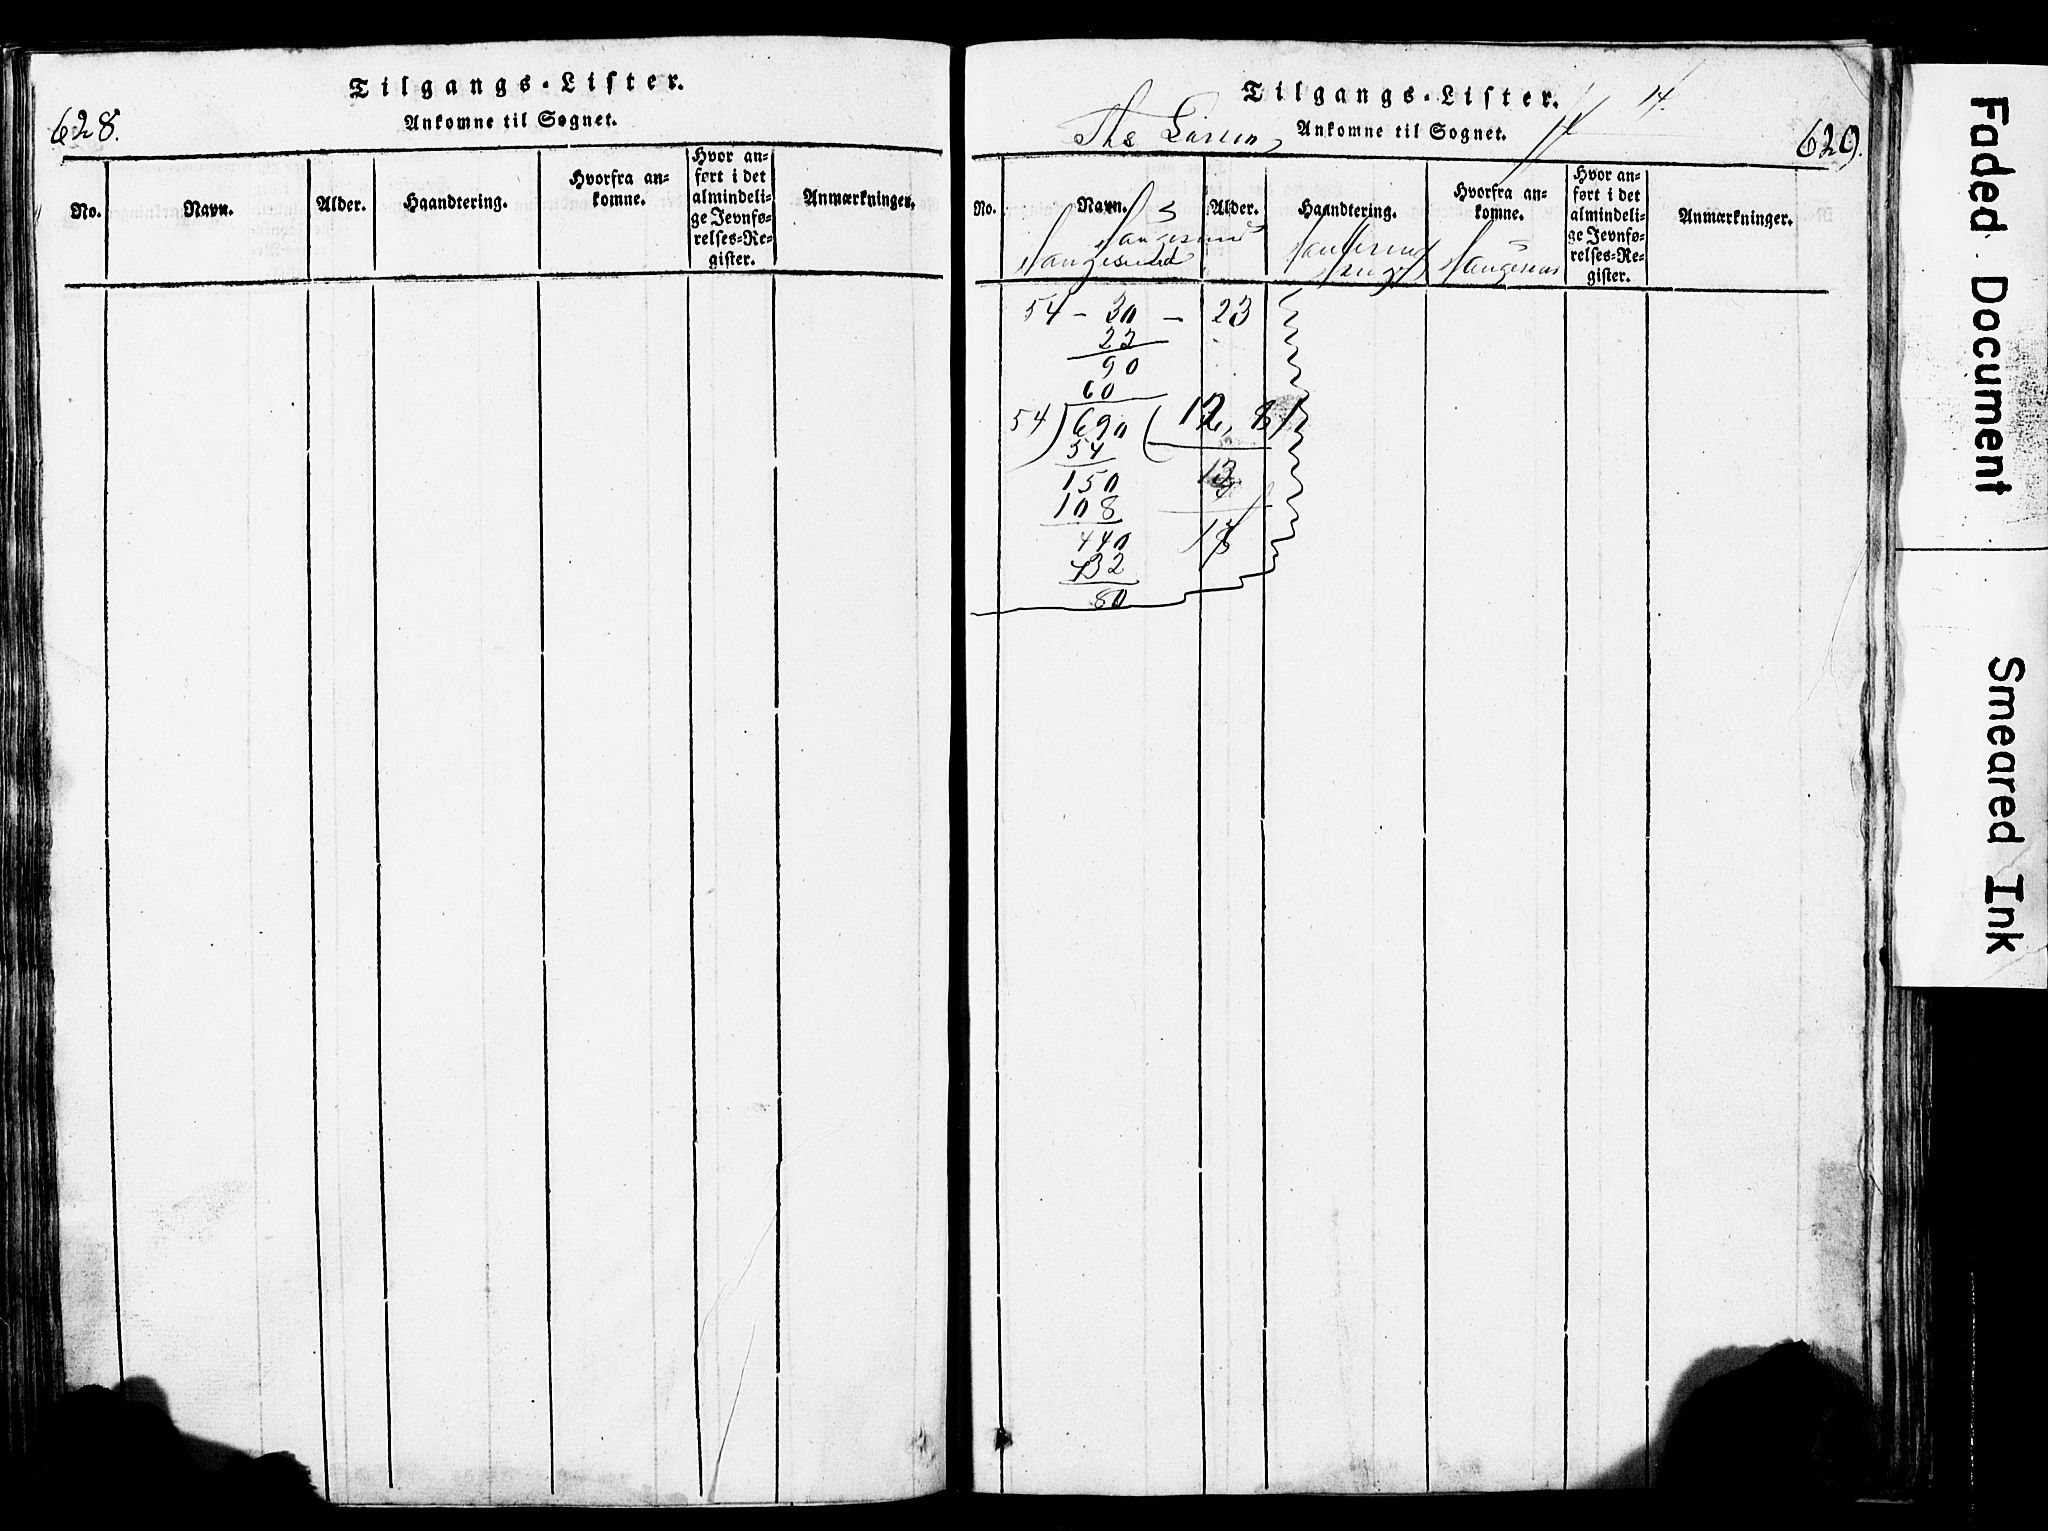 628.
Tilgangs-Lister.
Ankomne til Sognet.
No.
Navn.
Alder.
Haandtering.
Hvorfra an-
komne.
Hvor an-
ført i det
almindeli-
ge Jevnfø-
relses-Re-
gister.
Anmærkninger.
Tilgangs-Lister.
14.
Ths Larsen
Ankomne til Sognet.
629.
No.
Navn.
Alder.
Haandtering.
Hvorfra an-
komne.
Hvor an-
ført i det
almindeli-
ge Jevnfø-
relses-Re-
gister.
Anmærkninger.
54 - 30 - 23
23
90
60
54)690(12,8
54
150
13
108
440
18
432
80
Faded Document
Smeared Ink